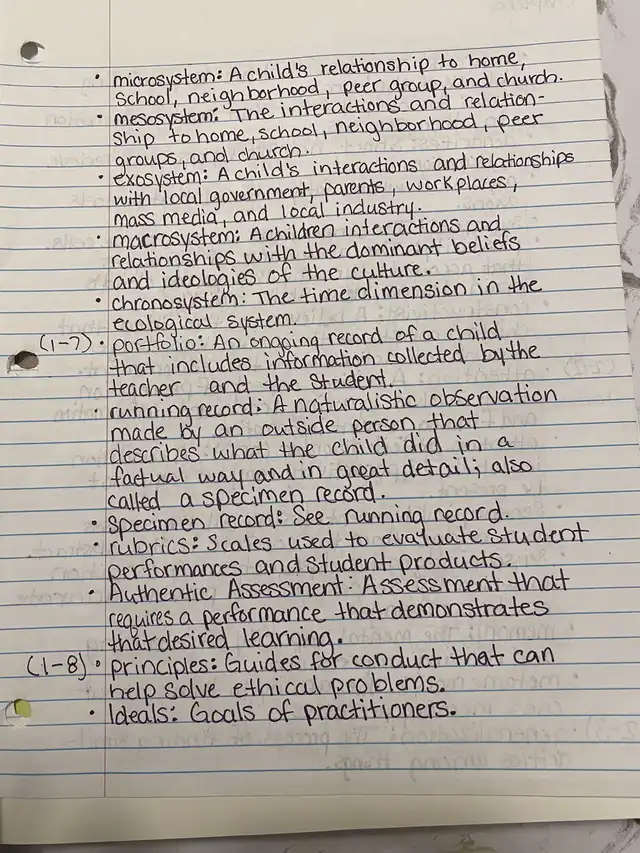 • microsystem: A child's relationship to home,
school, neighborhood, peer group, and church.
• mesosystem: The interactions and relation-
ship to home, school, neighborhood, peer
groups, and church.
• exosystem: A child's interactions and relationships
with local government, parents, workplaces,
mass media, and local industry.
• macrosystem: A children interactions and
relationships with the dominant beliefs
and ideologies of the culture.
• chronosystem: The time dimension in the
ecological system.
(1-7) • portfolio: An ongoing record of a child
that includes information collected by the
teacher and the student.
• running record: A naturalistic observation
made by an outside person that
describes what the child did in a
factual way and in great detail; also
called a specimen record.
• specimen record: See running record.
• rubrics: Scales used to evaluate student
performances and student products.
• Authentic Assessment: Assessment that
requires a performance that demonstrates
that desired learning.
(1-8) • principles: Guides for conduct that can
help solve ethical problems.
• Ideals: Goals of practitioners.